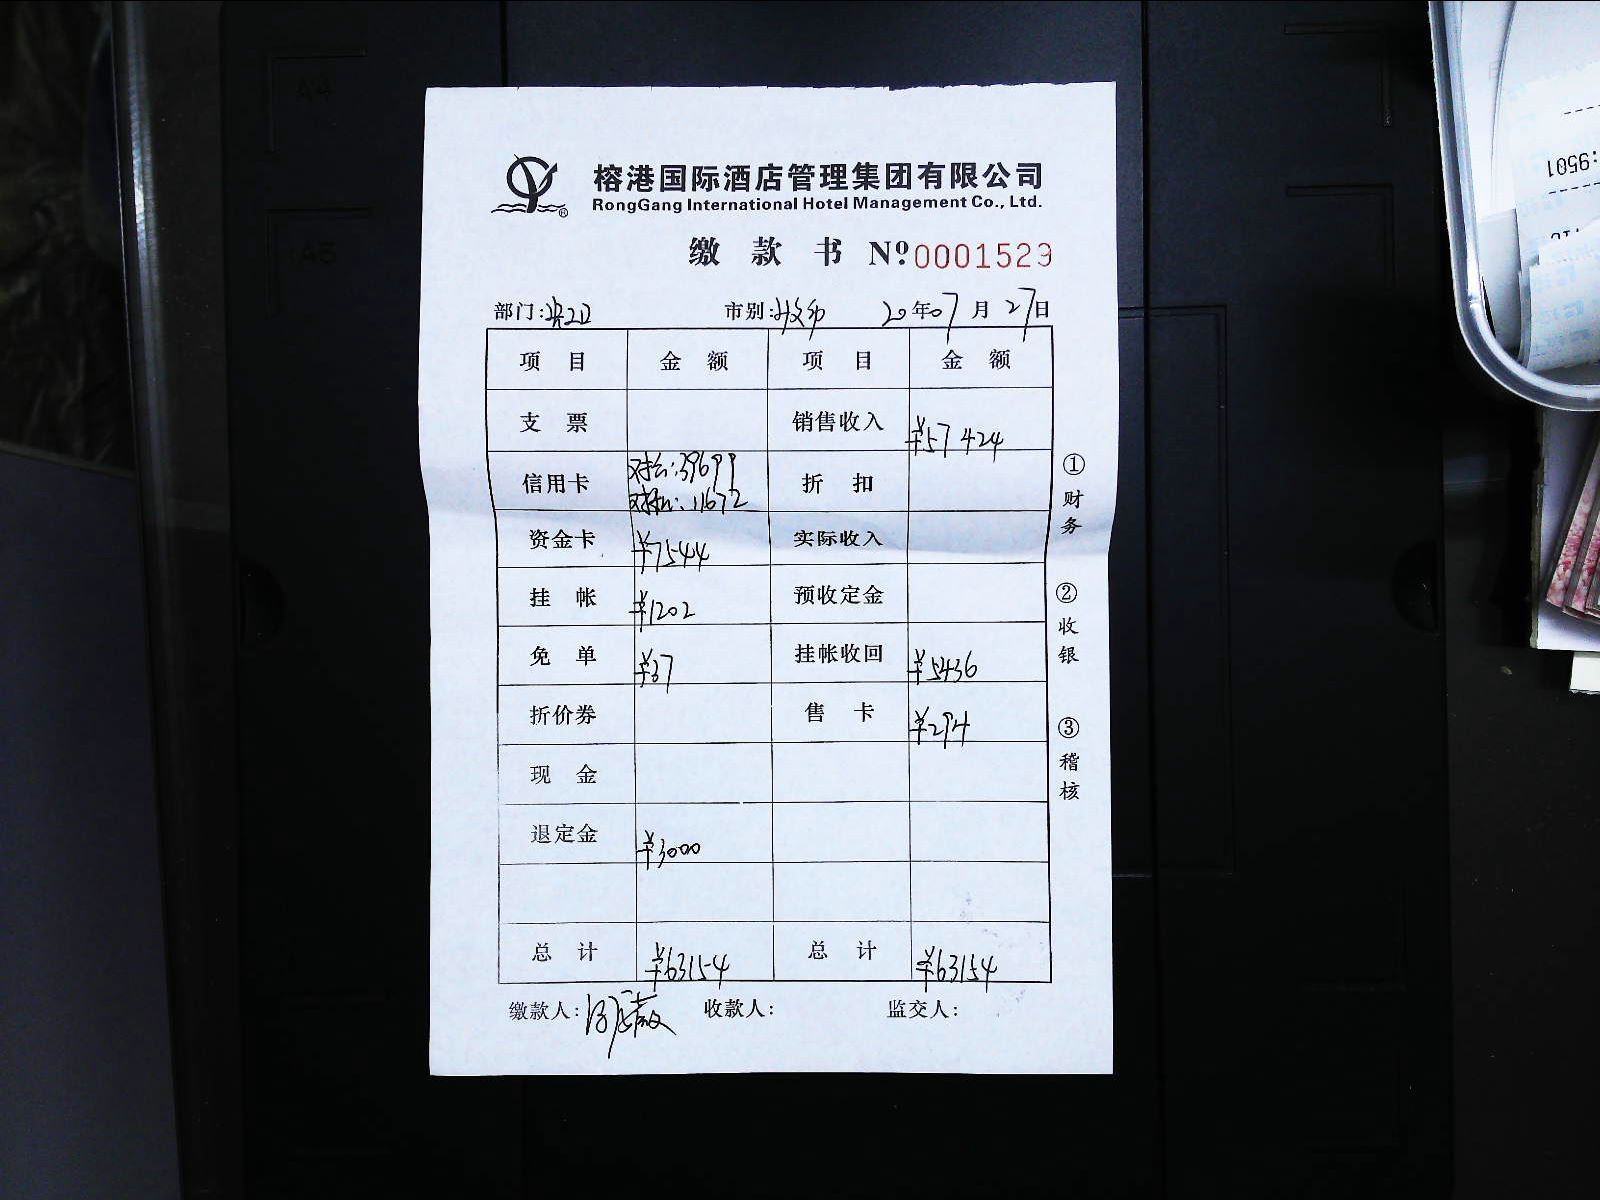 榕港国际酒店管理集团有限公司
RongGang International Hotel Management Co., Ltd.
缴款书 Nº 0001529
部门: 市别: 20年07月27日
项目 金额 项目 金额
支票 销售收入 ¥57424
信用卡 对公:39699 11672 折扣
资金卡 ¥7544 实际收入
挂帐 ¥1202 预收定金
免单 ¥37 挂帐收回 ¥5436
折价券 售卡 ¥294
现金
退定金 ¥3000
总计 ¥63154 总计 ¥63154
缴款人: 收款人: 监交人:
①财务
②收银
③稽核
A4
A5
:9501